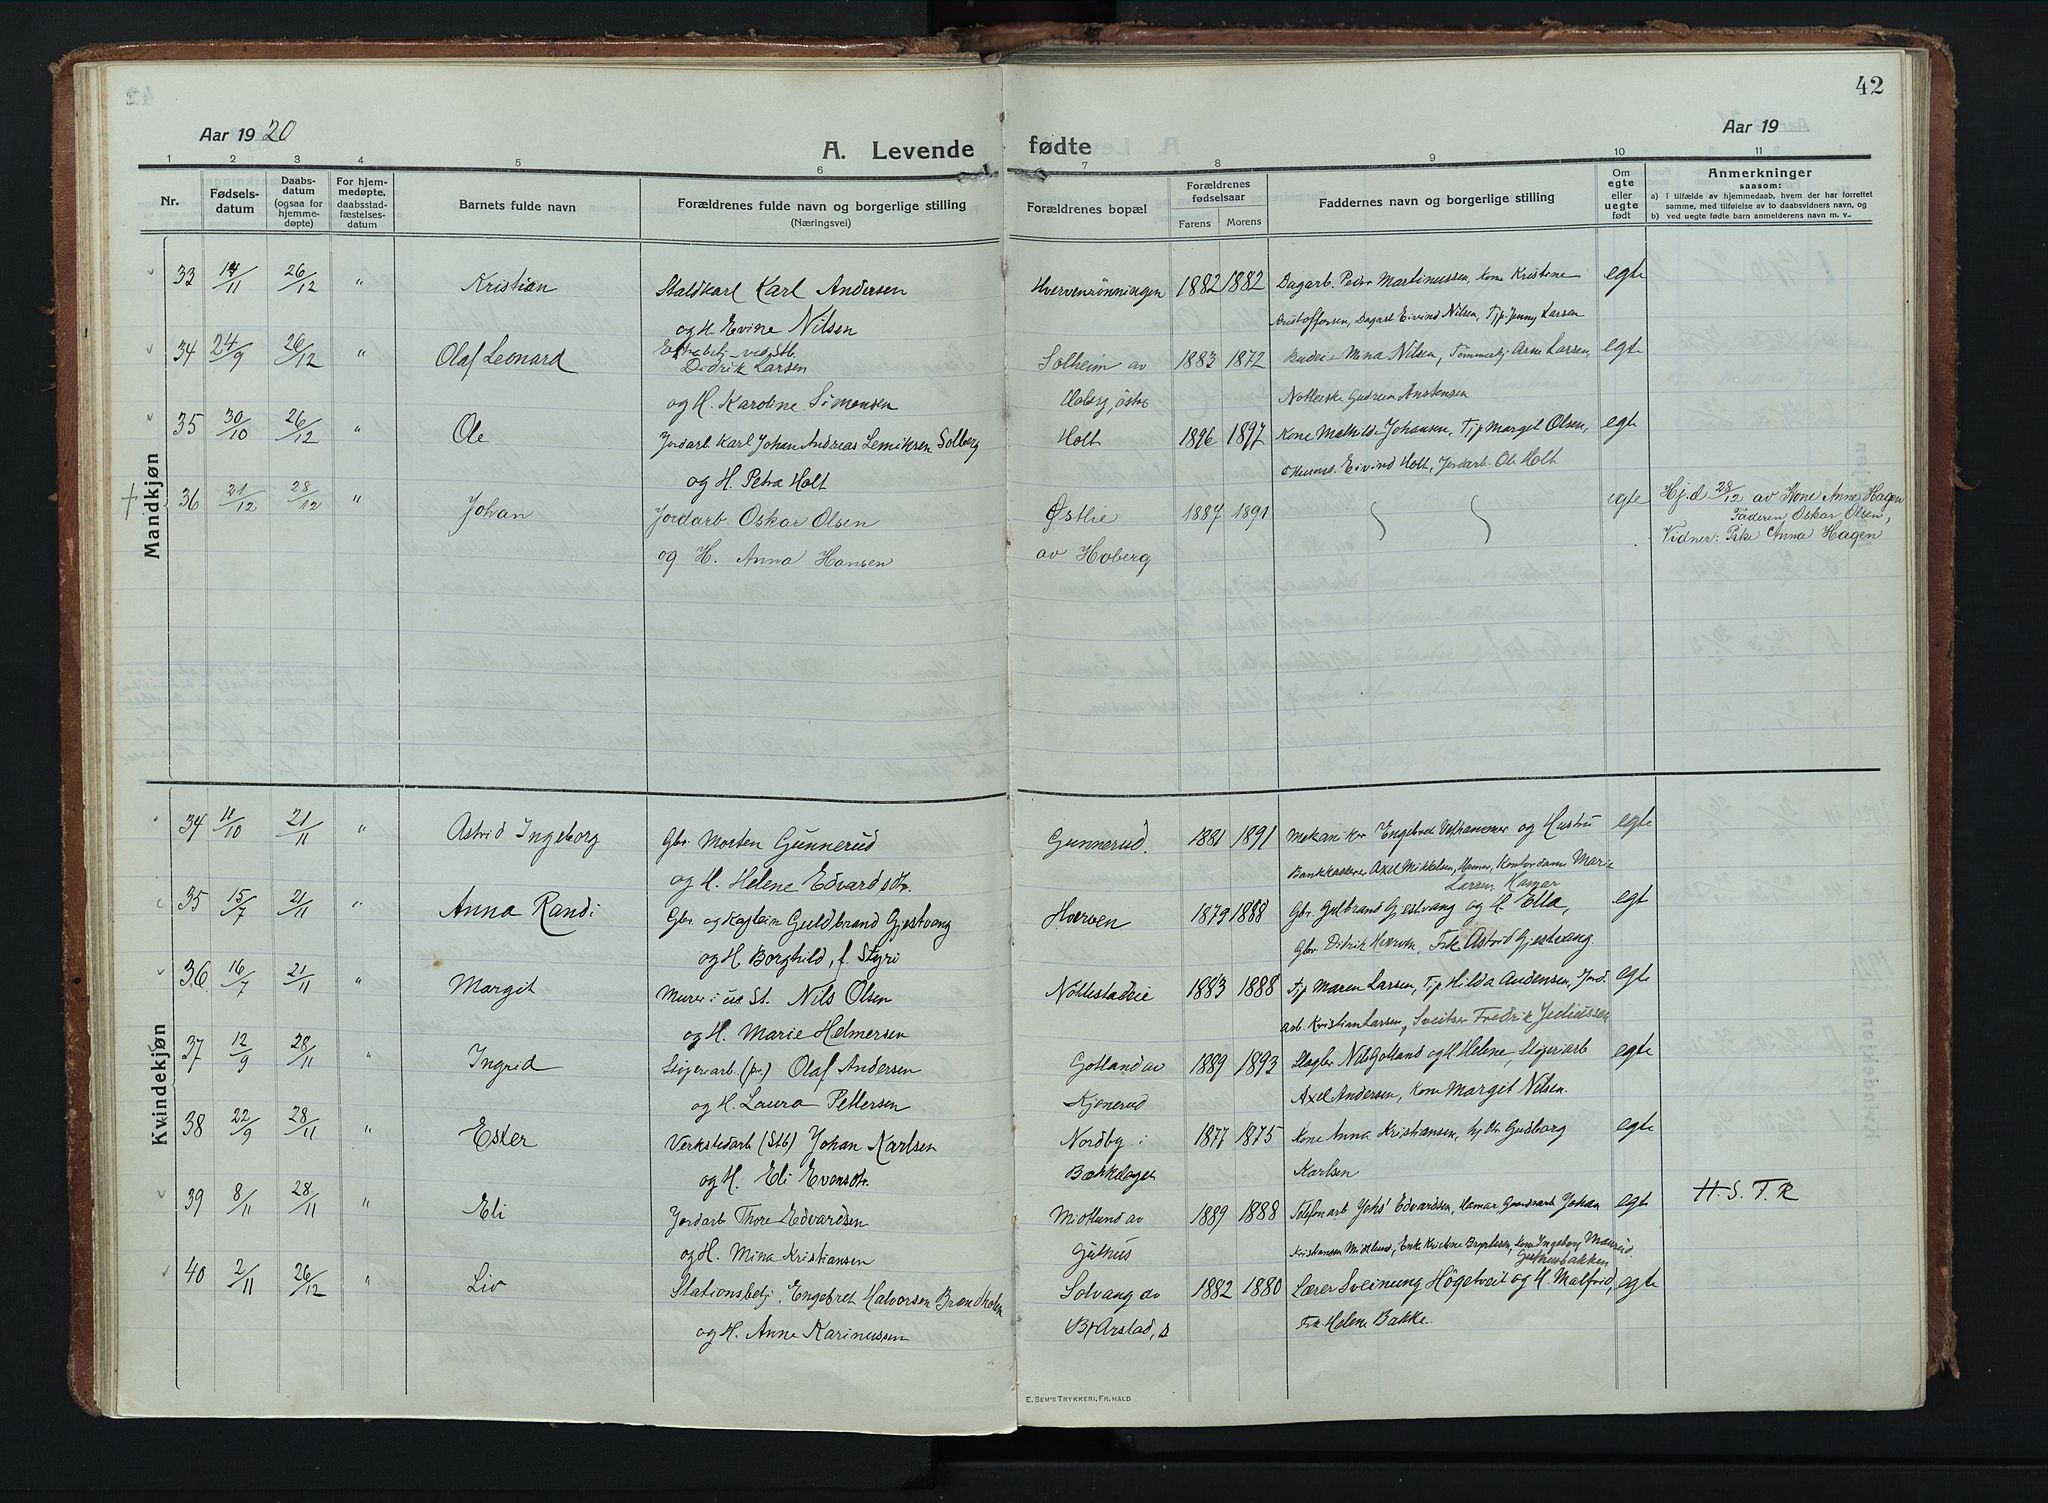 42
Aar 1920
A. Levende fødte
Aar 19
1 2 3 4 5 6 7 8 9 10 11
Nr.
Fødselsdatum
Daabsdatum (ogsaa for hjemmedøpte)
For hjemmedøpte, daabsstadfæstelsesdatum
Barnets fulde navn
Forældrenes fulde navn og borgerlige stilling
(Næringsvei)
Forældrenes bopæl
Forældrenes fødselsaar
Farens Morens
Faddernes navn og borgerlige stilling
Om egte eller uegte født
Anmerkninger
saasom:
a) i tilfælde av hjemmedaab, hvem der har forrettet
samme, med tilføielse av to daabsvidners navn, og
b) ved uegte fødte barn anmelderens navn m. v..
Mandkjøn
33 14/11 26/12 " Kristian Staldkarl Karl Andersen Hvervenrønningen 1882 1882 Dagarb. Peder Martinussen, Kone Kristine egte
og H. Evine Nilsen Kristoffersen, Dagarb Eivind Nilsen, Tj.p. Jenny Larsen
34 24/9 26/12 " Olaf Leonard Didrik Larsen Solheim av 1883 1872 Mina Nilsen, Arne Larsen, egte
og H. Karoline Simensen Hoberg, østre Gudrun Anstensen
35 30/10 26/12 " Ole Jordarb Karl Johan Andreas Lemiksen Solberg Holt 1896 1897 Kone Mathilde Johansen, Tjp Margit Olsen, egte
og H. Petra Holt Eivind Holt, Jordarb. Ole Holt
36 21/12 28/12 " Johan Jordarb. Oskar Olsen Østlie 1887 1891 egte Hj.d 28/12 av Kone Anne Hagen
og H. Anna Hansen av Hoberg Faderen Oskar Olsen,
Vidner: Pike Anna Hagen
Kvindekjøn
34 11/10 21/11 " Astrid Ingeborg Gbr. Morten Gunnerud Gunnerud. 1881 1891 Mekaniker Engebret og Hustru egte
og H. Helene Edvardsdtr. Bankkasserer Axel Mikkelsen, Hamar, Kontordame Marie
Larsen, Hamar
35 15/7 21/11 " Anna Randi Gbr. og Kaptein Guldbrand Gjestvang Hverven 1879 1888 Gbr. Gulbrand Gjestvang og H. Ella, egt
og H. Borghild, f. Styri Gbr Didrik Hverven, Frk Astrid Gjestvang.
36. 16/7 21/11 " Margit Murer i ua St. Nils Olsen Nøttestadeie 1883 1888 Tjp Maren Larsen, Tjp Hilda Andensen, Jord. egte
og H. Marie Helmersen arb. Kristian Larsen, Sveitser Fredrik Juliussen
37 12/9 28/11 " Ingrid Slipjeriarb (pr.) Olaf Andersen Gotland av 1889 1893 Nils Gotland og H Helene, egte
og H. Laura Pettersen Kjønerud Axel Andersen, Kone Margit Nilsen.
38 22/9 28/11 " Ester Verkstedarb (Stb) Johan Karlsen Nordby i 1877 1875 Kone Anna Kristiansen, Gudborg egte
og H. Eli Evensdtr. Bækkelagen Karlsen
39 8/11 28/11 " Eli Jordarb Thore Edvardsen Midtlund av 1889 1888 Telefonarb Johs' Edvardsen, Hamar, Johan egte H. S. T. R
og H. Mina Kristiansen Guthus Kristiansen Midtlund, Enke Kristine Ingeborg
40 2/11 26/12 " Liv Stationsbetj. Engebret Halvorsen Brændholen Solvang av 1882 1880 Lærer Sveinung Høgetveit og H. Malfrid, egte
og H. Anne Karinussen B. Arstad, s Frk. Helene Bakke.
E. SEM'S TRYKKERI, FR.HALD